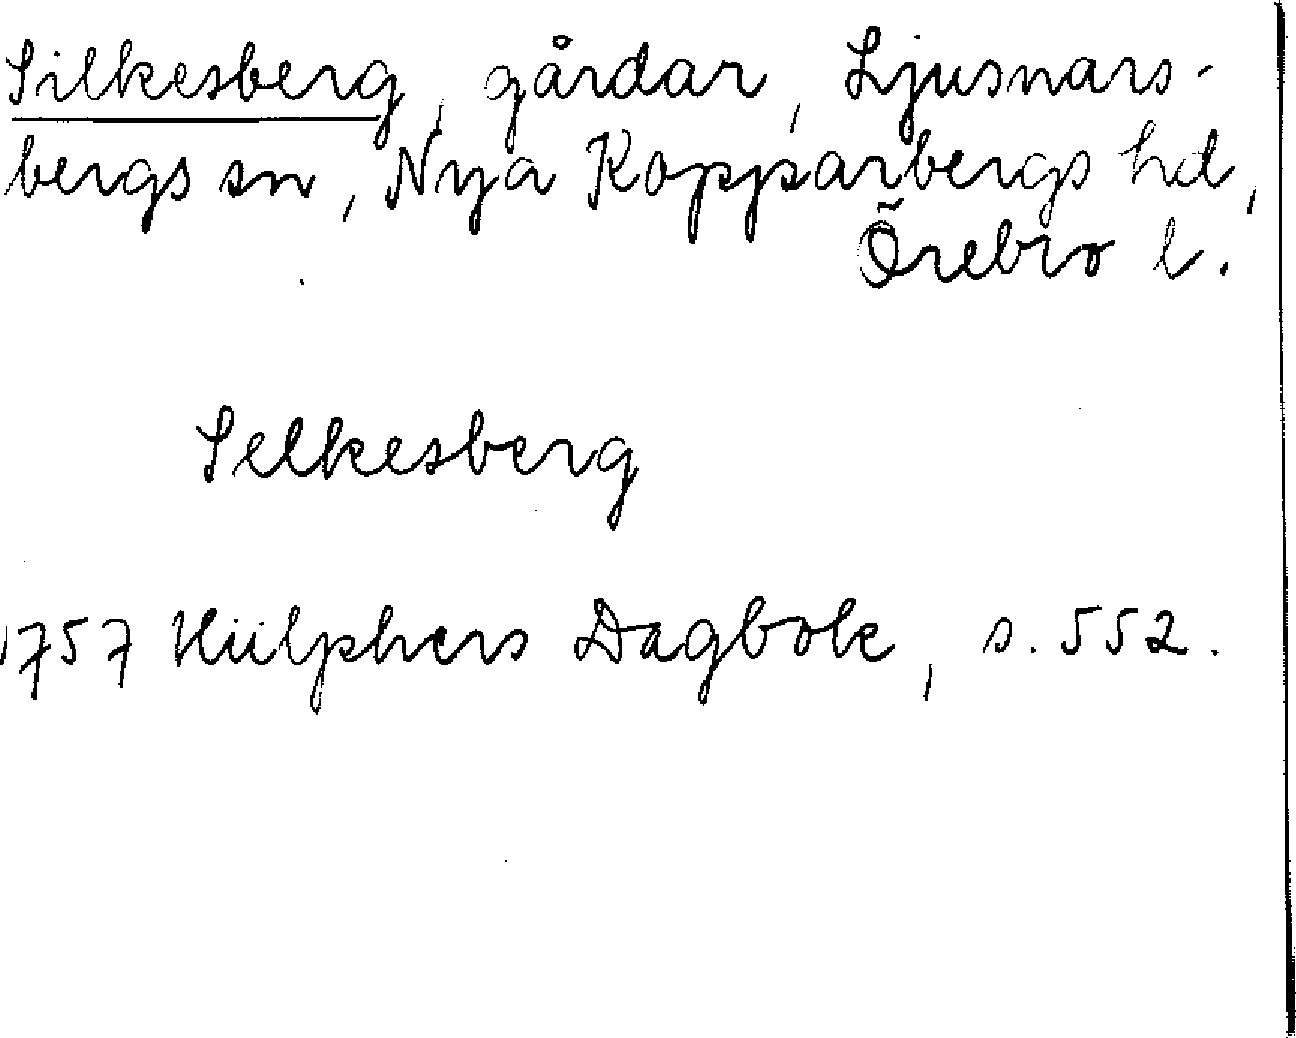 Silkesberg, gårdar, Ljusnars-
bergs sn, Nya Kopparbergs hd,
Örebro l.
Selkesberg
1757 Hülphers Dagbok, s. 552.